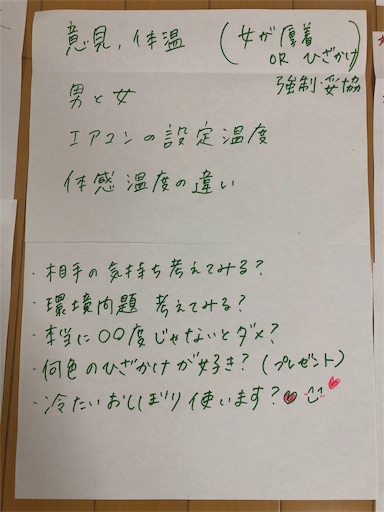 意見、体温 (女が厚着
OR ひざかけ)
強制・妥協
男と女
エアコンの設定温度
体感温度の違い
・相手の気持ち考えてみる?
・環境問題 考えてみる?
・本当に○○度じゃないとダメ?
・何色のひざかけが好き? (プレゼント)
・冷たいおしぼり使います?